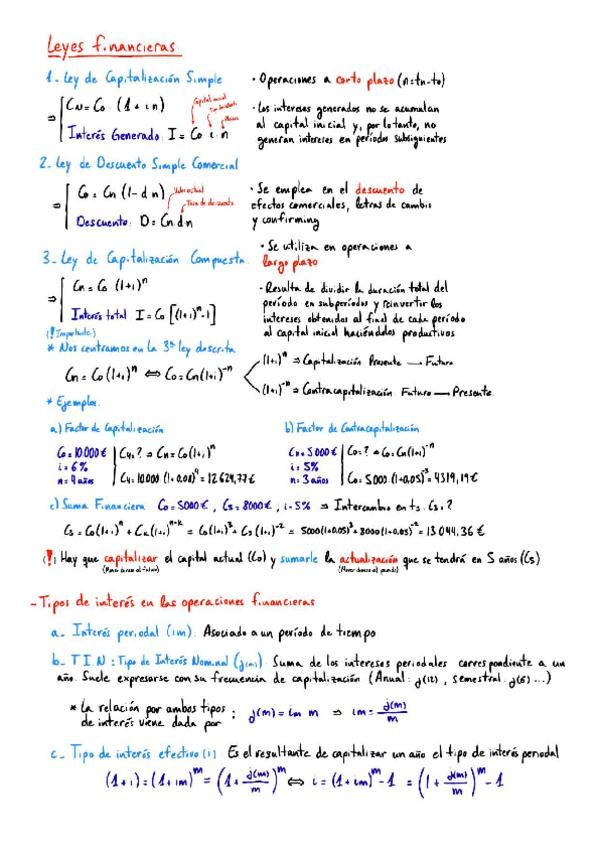 Leyes financieras
1_ Ley de Capitalización Simple
⇒ Cn = Co · (1 + i n)
Capital inicial
Interés Generado: I = Co · i · n
· Operaciones a corto plazo (n = tn - to)
· Los intereses generados no se acumulan
al capital inicial y, por lo tanto, no
generan intereses en periodos subsiguientes
2_ Ley de Descuento Simple Comercial
⇒ Co = Cn (1 - d n)
Valor actual
Tasa de descuento
Descuento: D = Cn d n
· Se emplea en el descuento de
efectos comerciales, letras de cambio
y confirming
3_ Ley de Capitalización Compuesta
⇒ Cn = Co (1+i)^n
Interés total I = Co [(1+i)^n - 1]
· Se utiliza en operaciones a
largo plazo
· Resulta de dividir la duración total del
período en subperíodos y reinvertir los
intereses obtenidos al final de cada período
al capital inicial haciéndolos productivos
(! Importante)
* Nos centramos en la 3ª ley descrita
Cn = Co (1+i)^n ⇔ Co = Cn (1+i)^-n
(1+i)^n ⇒ Capitalización Presente → Futuro
(1+i)^-n ⇒ Contracapitalización Futuro → Presente
* Ejemplos:
a) Factor de Capitalización
Co = 10.000 €
i = 6%
n = 4 años
C4 = ? ⇒ Cn = Co (1+i)^n
C4 = 10.000 (1+0.06)^4 = 12.624,77 €
b) Factor de Contracapitalización
Cn = 5.000 €
i = 5%
n = 3 años
Co = ? ⇒ Co = Cn (1+i)^-n
Co = 5.000 · (1+0.05)^-3 = 4319,19 €
c) Suma Financiera: Co = 5000 €, C5 = 8000 €, i = 5% ⇒ Intercambio en t3. C3 = ?
C3 = Co (1+i)^n + Cn (1+i)^n-k = Co (1+i)^3 + C5 (1+i)^-2 = 5000 (1+0.05)^3 + 8000 (1+0.05)^-2 = 13.044,36 €
(!) Hay que capitalizar el capital actual (Co) y sumarle la actualización que se tendrá en 5 años (C5)
(Mover dinero al futuro)
(Mover dinero al pasado)
- Tipos de interés en las operaciones financieras
a_ Interés periodal (im): Asociado a un período de tiempo
b_ T.I.N: Tipo de Interés Nominal (j(m)). Suma de los intereses periodales correspondiente a un
año. Suele expresarse con su frecuencia de capitalización (Anual: j(12), Semestral: j(6) ...)
* La relación por ambos tipos
de interés viene dada por : j(m) = im m ⇒ im = j(m)/m
c_ Tipo de interés efectivo (i): Es el resultante de capitalizar un año el tipo de interés periodal
(1+i) = (1+im)^m = (1 + j(m)/m)^m ⇔ i = (1+im)^m - 1 = (1 + j(m)/m)^m - 1